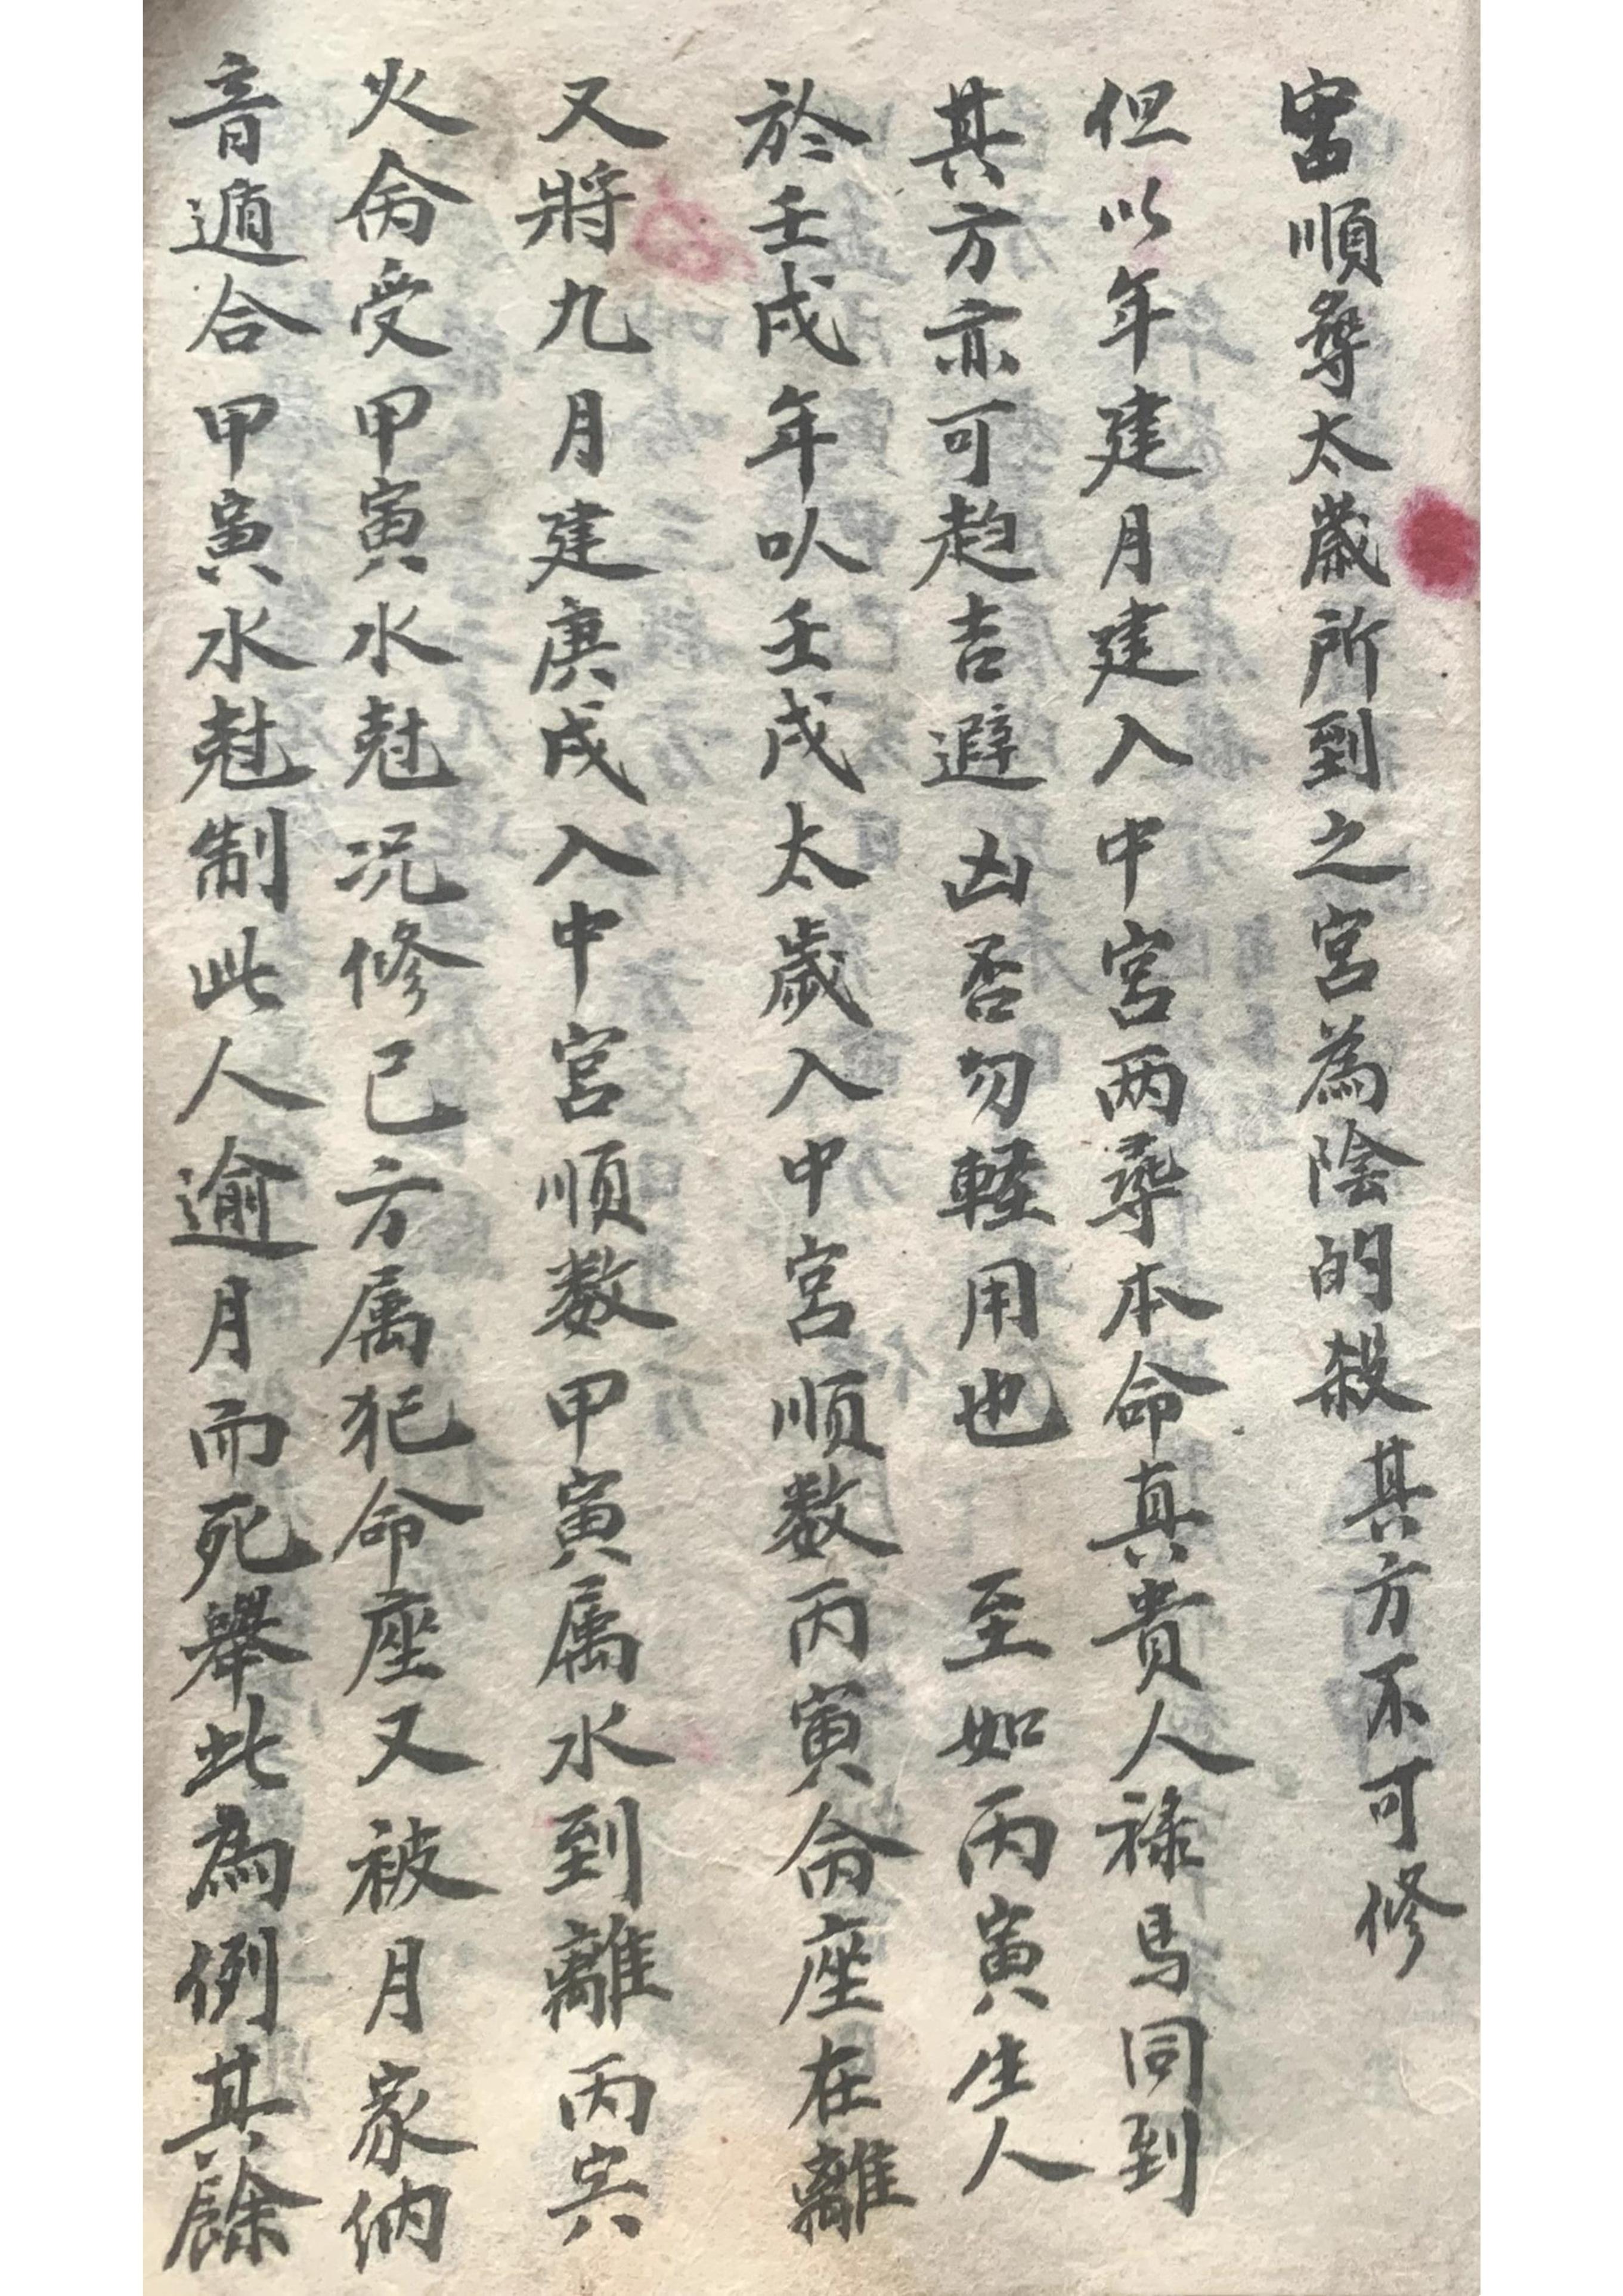 宮順尋太歲所到之宮為陰的殺其方不可修
但以年建月建入中宮两尋本命真貴人祿馬同到
其方亦可趋吉避凶否勿輕用也 至如丙寅生人
於壬戌年以壬戌太歲入中宮順数丙寅命座在離
又將九月建庚戌入中宮順数甲寅属水到離丙寅
火命受甲寅水尅况修己方属犯命座又被月家纳
音遁合甲寅水尅制此人逾月而死舉此為例其餘